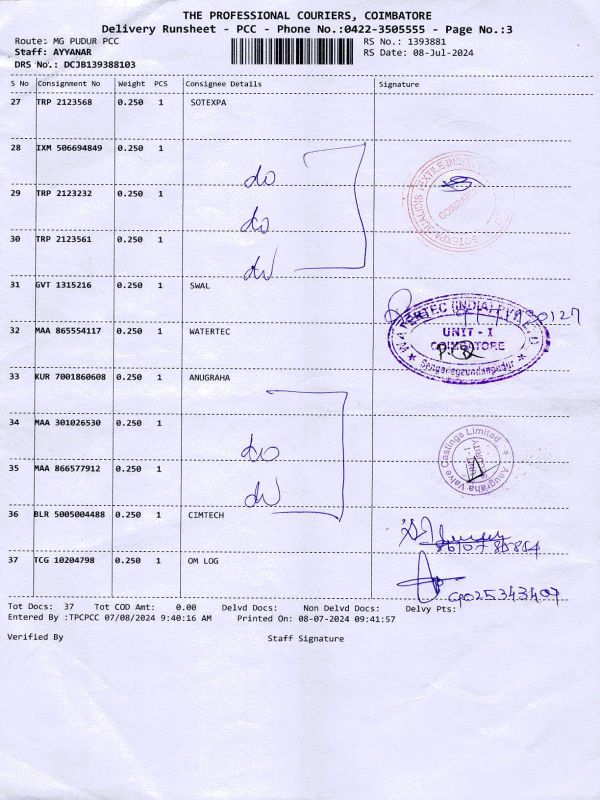 THE PROFESSIONAL COURIERS, COIMBATORE
Delivery Runsheet - PCC - Phone No.:0422-3505555 - Page No.:3
Route: MG PUDUR PCC RS No.: 1393881
Staff: AYYANAR RS Date: 08-Jul-2024
DRS No.: DCJB139388103
S No Consignment No Weight PCS Consignee Details Signature
27 TRP 2123568 0.250 1 SOTEXPA
28 IXM 506694849 0.250 1 do
29 TRP 2123232 0.250 1 do
30 TRP 2123561 0.250 1 do
31 GVT 1315216 0.250 1 SWAL
32 MAA 865554117 0.250 1 WATERTEC
WATERTEC (INDIA) PVT LTD
UNIT - I
COIMBATORE
33 KUR 7001860608 0.250 1 ANUGRAHA
34 MAA 301026530 0.250 1 do
Anugraha Valve Castings Limited
35 MAA 866577912 0.250 1 do
36 BLR 5005004488 0.250 1 CIMTECH
37 TCG 10204798 0.250 1 OM LOG
9025343407
Tot Docs: 37 Tot COD Amt: 0.00 Delvd Docs: Non Delvd Docs: Delvy Pts:
Entered By :TPCPCC 07/08/2024 9:40:16 AM Printed On: 08-07-2024 09:41:57
Verified By Staff Signature